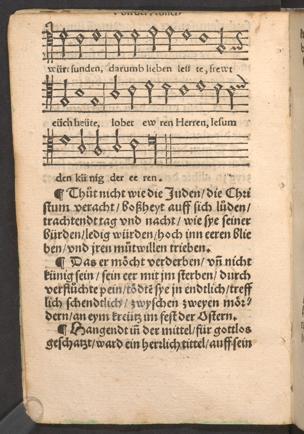 würt funden, darumb lieben leü te, frewt
eüch heüte, lobet ew ren Herren, Jesum
den kü nig der ee ren.
¶ Thüt nicht wie die Juden/die Chri
stum veracht/boßheyt auff sich lüden/
trachtendt tag vnd nacht/wie sye seiner
bürden/ledig würden/hoch inn eeren blie
ben/vnd jren mütwillen trieben.
¶ Das er möcht verderben/vñ nicht
künig sein/sein eer mit jm sterben/durch
verflüchte pein/tödtẽ sye jn endtlich/treff
lich schendtlich/zwyschen zweyen möꝛ⸗
dern/an eym kreütz im fest der Ostern.
¶ Hangendt iñ der mittel/für gottlos
geschatzt/ward ein herrlich tittel/auff sein